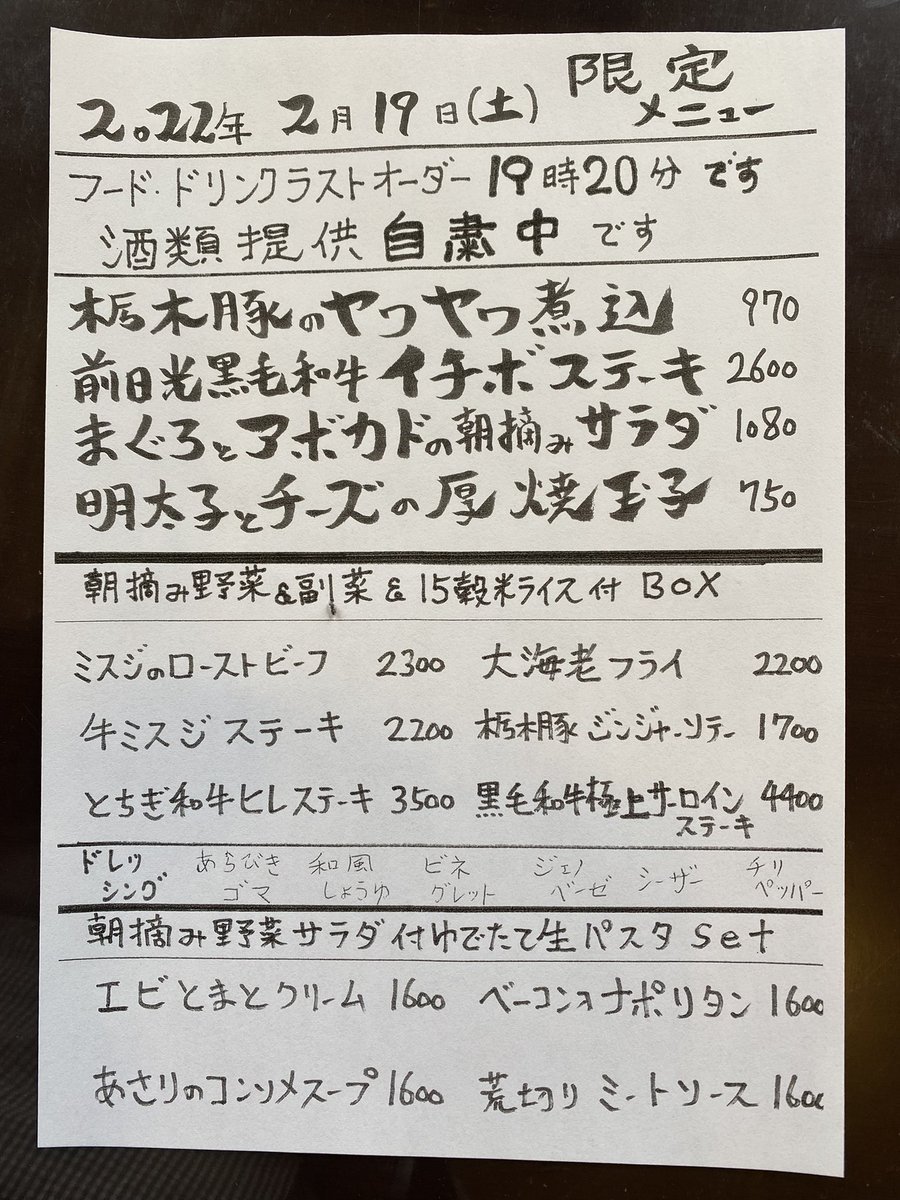 2022年 2月 19日(土) 限定メニュー
フード・ドリンクラストオーダー 19時20分 です
酒類提供 自粛中 です
栃木豚のヤワヤワ煮込 970
前日光黒毛和牛イチボステーキ 2600
まぐろとアボカドの朝摘みサラダ 1080
明太子とチーズの厚焼玉子 750
朝摘み野菜&副菜&15穀米ライス付 BOX
ミスジのローストビーフ 2300 大海老フライ 2200
牛ミスジステーキ 2200 栃木豚ジンジャーソテー 1700
とちぎ和牛ヒレステーキ 3500 黒毛和牛極上サーロイン 4400
ステーキ
ドレッ あらびき 和風 ビネ ジェノ シーザー チリ
シング ゴマ しょうゆ グレット ベーゼ ペッパー
朝摘み野菜サラダ付ゆでたて生パスタ Set
エビとまとクリーム 1600 ベーコンオナポリタン 1600
あさりのコンソメスープ 1600 荒切りミートソース 1600